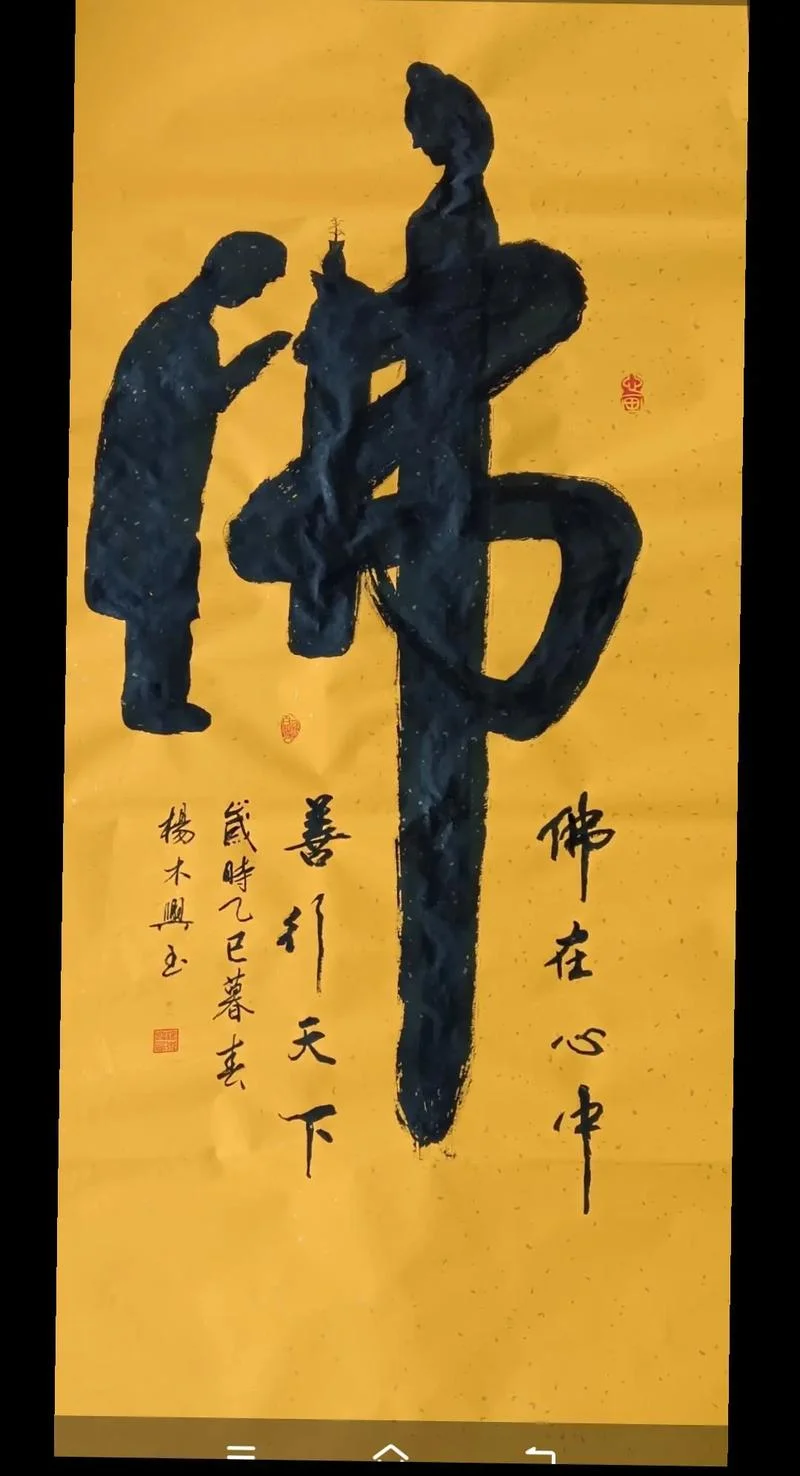 佛
佛在心中
善行天下
歲時乙巳暮春
楊木興書